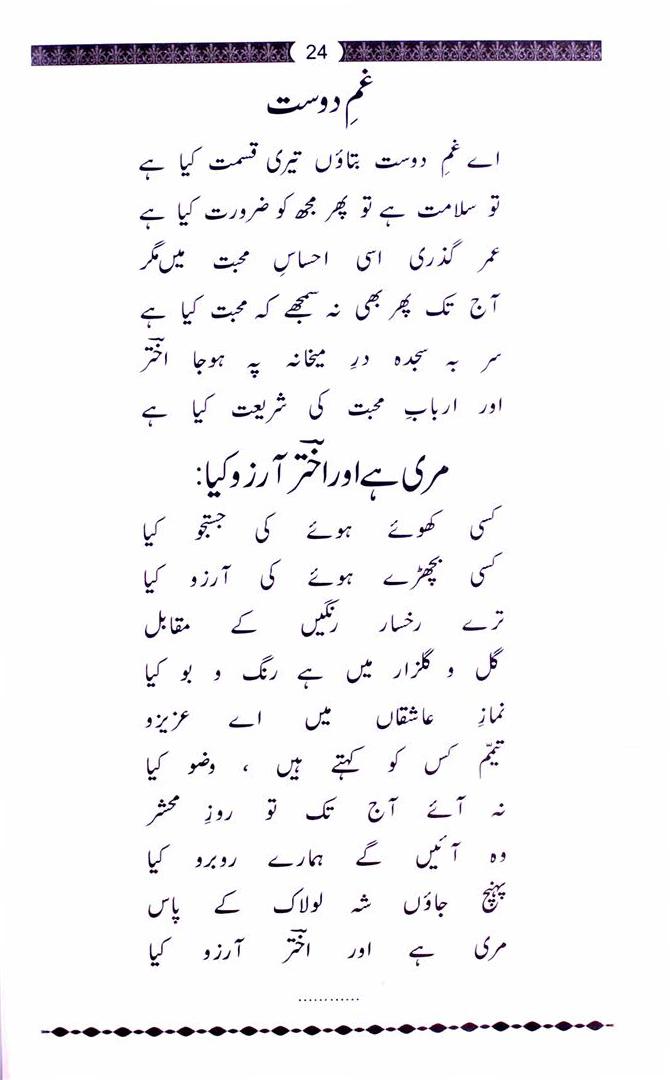 24
غمِ دوست
اے غمِ دوست بتاؤں تیری قسمت کیا ہے
تو سلامت ہے تو پھر مجھ کو ضرورت کیا ہے
عمر گذری اسی احساسِ محبت میں مگر
آج تک پھر بھی نہ سمجھے کہ محبت کیا ہے
سر بہ سجدہ درِ میخانہ پہ ہوجا اخترؔ
اور اربابِ محبت کی شریعت کیا ہے
مری ہے اور اخترؔ آرزو کیا:
کسی کھوئے ہوئے کی جستجو کیا
کسی بچھڑے ہوئے کی آرزو کیا
ترے رخسار رنگیں کے مقابل
گل و گلزار میں ہے رنگ و بو کیا
نمازِ عاشقاں میں اے عزیزو
تیمّم کس کو کہتے ہیں ، وضو کیا
نہ آئے آج تک تو روزِ محشر
وہ آئیں گے ہمارے روبرو کیا
پہنچ جاؤں شہ لولاک کے پاس
مری ہے اور اخترؔ آرزو کیا
............